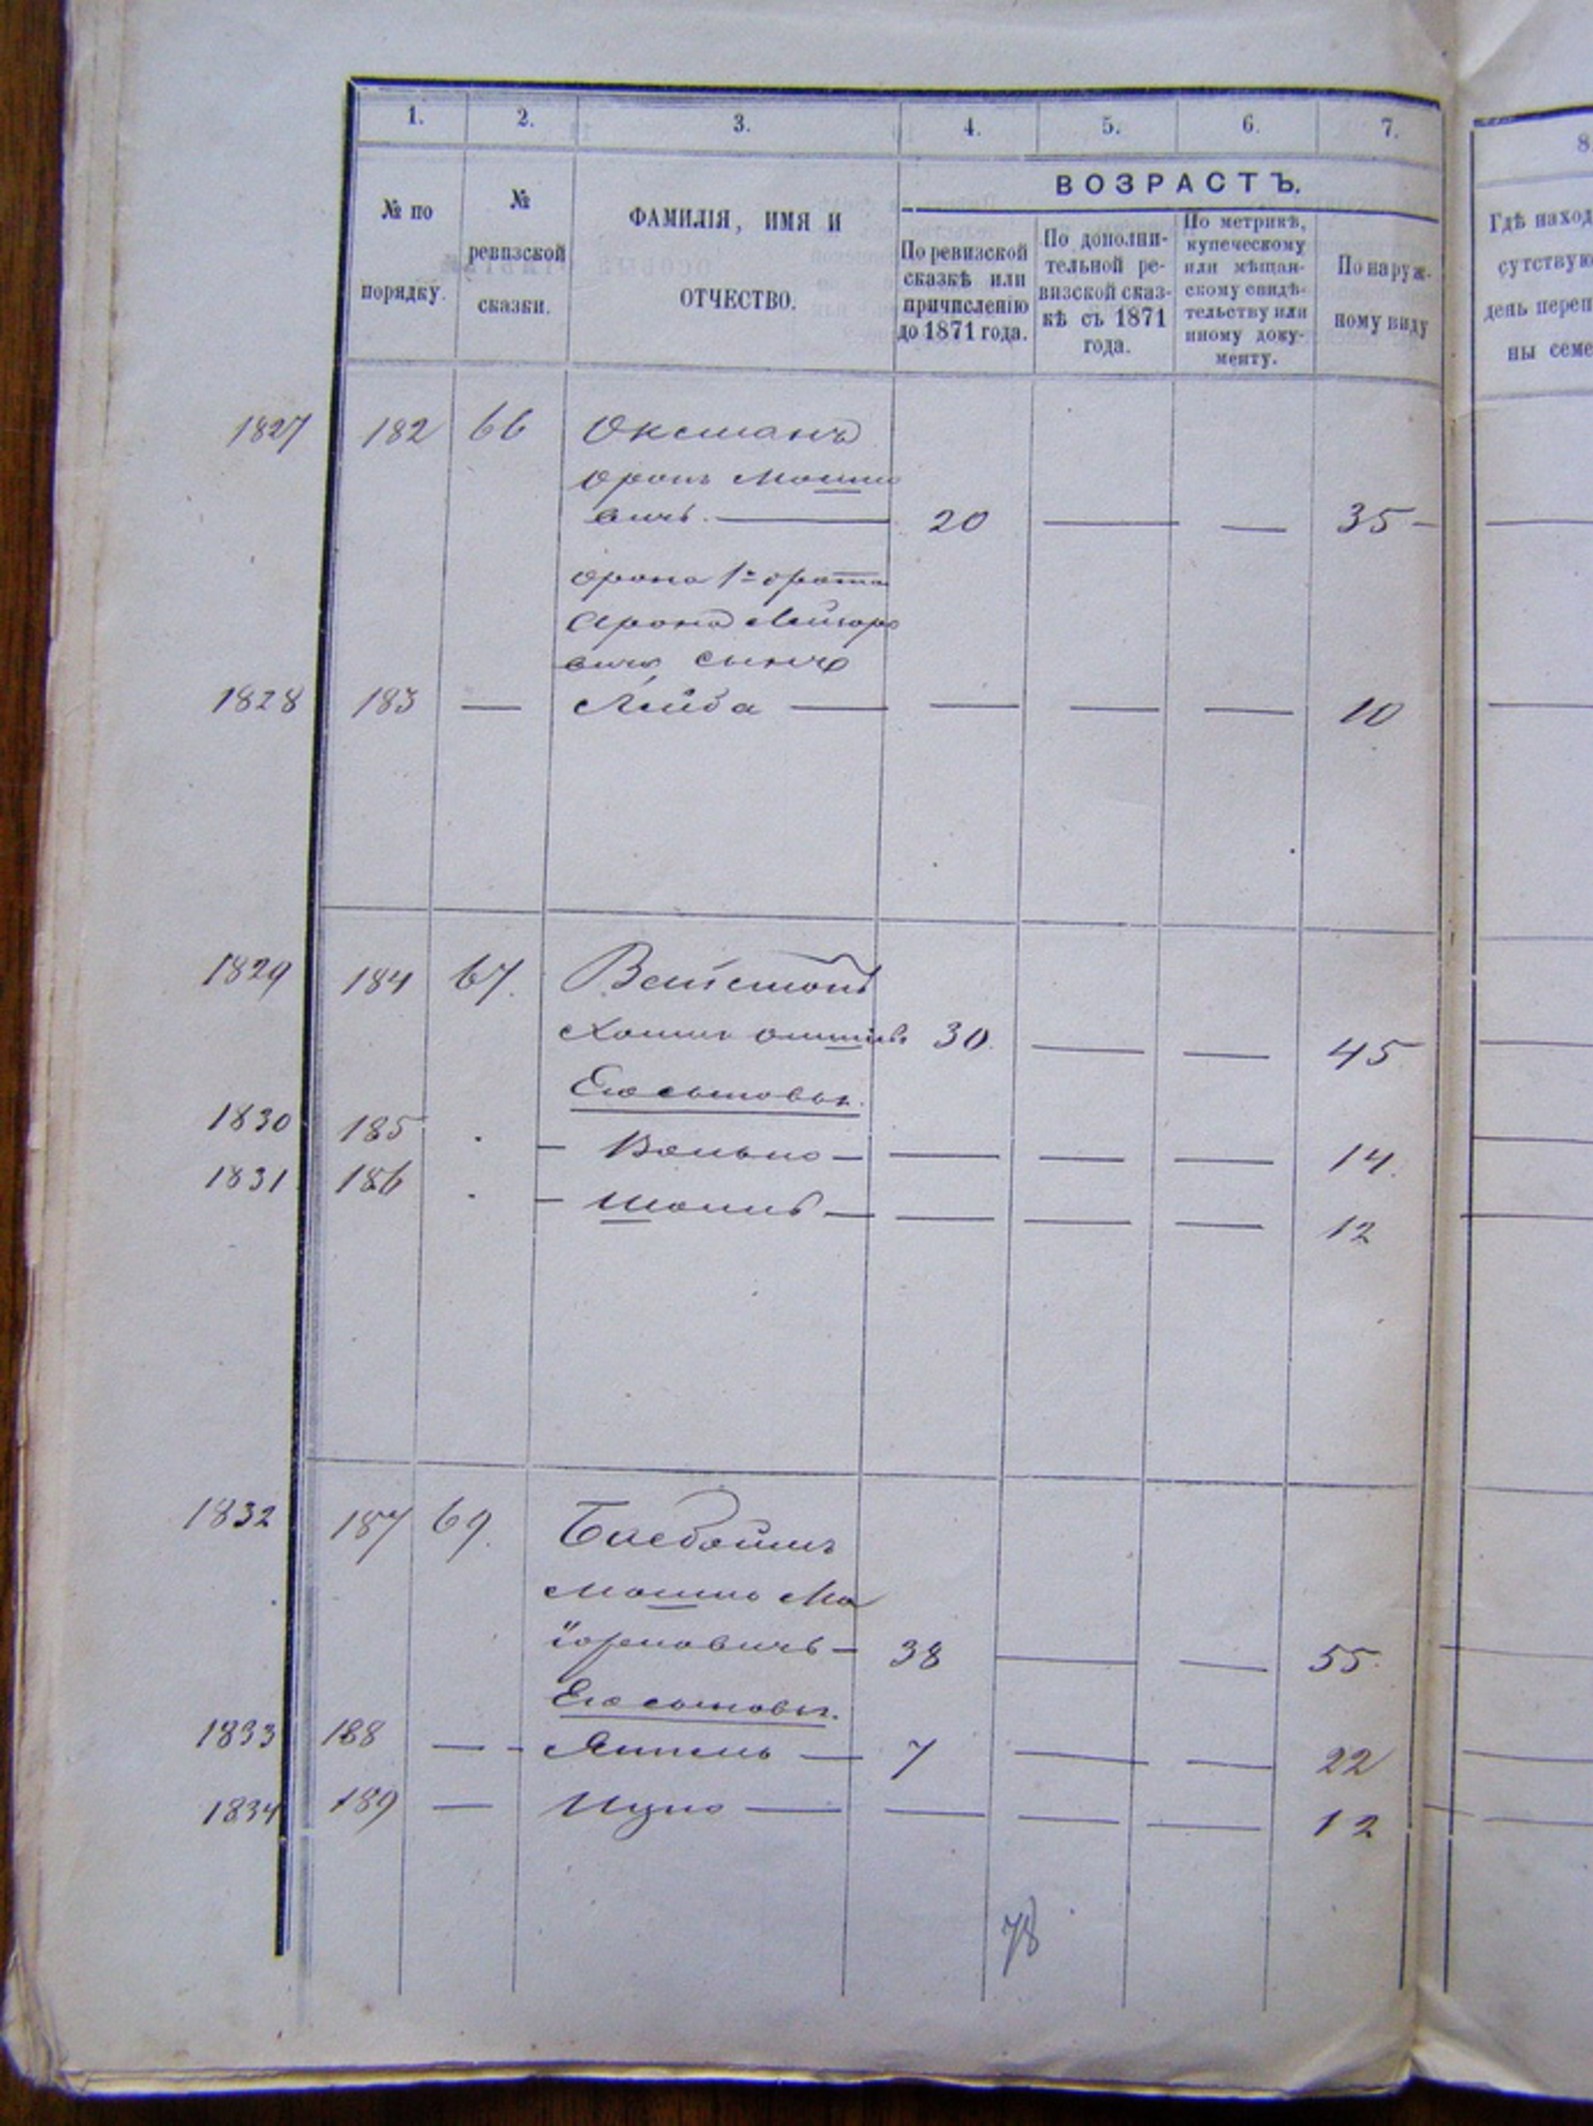 1. 2. 3. 4. 5. 6. 7. 8
№ по порядку.
№ ревизской сказки.
ФАМИЛІЯ, ИМЯ И
ОТЧЕСТВО.
ВОЗРАСТЪ.
По ревизской
сказкѣ или
причисленію
до 1871 года.
По дополни-
тельной ре-
визской сказ-
кѣ съ 1871
года.
По метрикѣ,
купеческому
или мѣщан-
скому свидѣ-
тельству или
иному доку-
менту.
По наруж-
ному виду
Гдѣ наход
сутствую
день переп
ны семе
1827 182 66 Оксманъ
вичъ. — 20 — — 35 —
Арона
сынъ
1828 183 — Лейба — — — — 10
1829 184 67.
30. — — 45
Его сыновья.
1830 185 . — — — — — 14.
1831 186 . — — — — — 12
1832 187 69.
Мошко Ма
38 — — 55.
Его сыновья.
1833 188 — - Янкель — 7 — — 22
1834 189 — Ицко — — — — 12
78